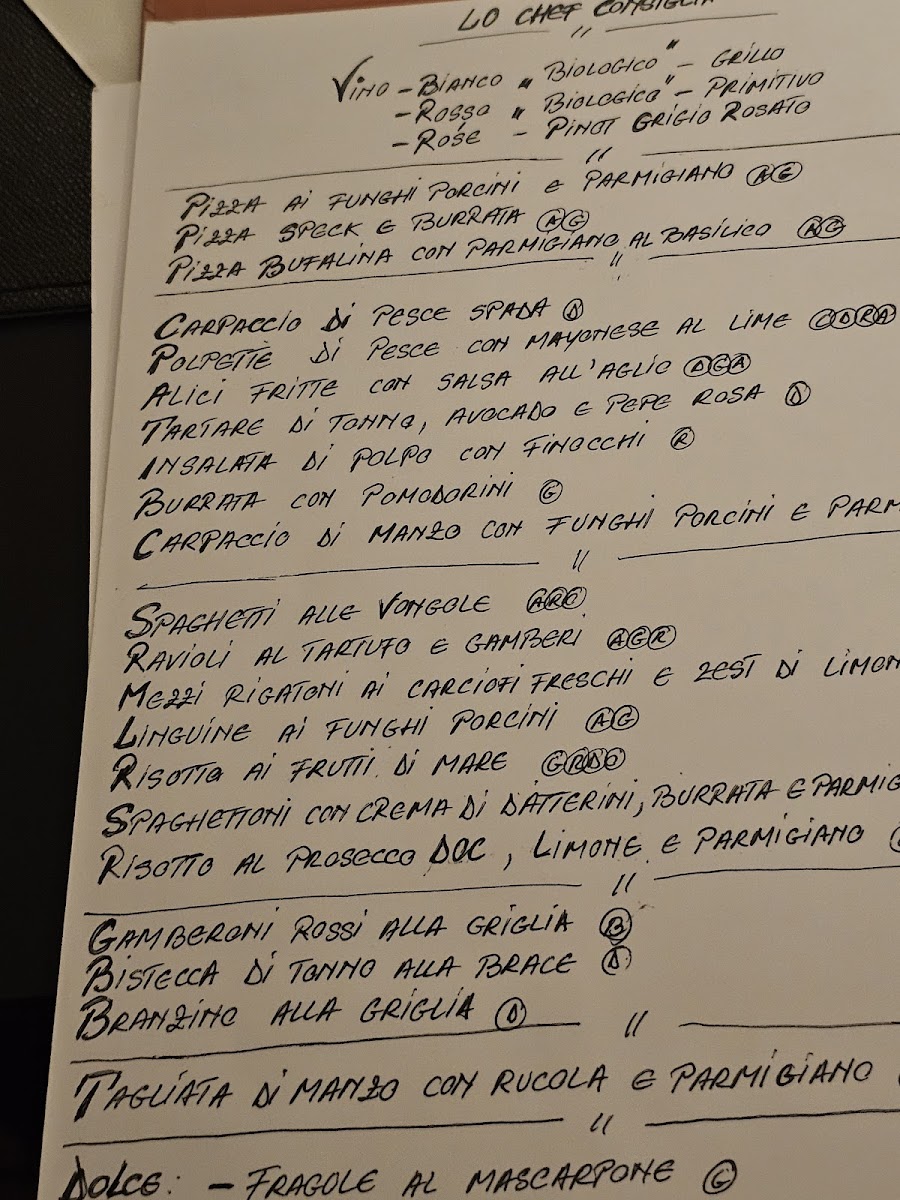 LO CHEF CONSIGLIA
//
VINO - BIANCO " BIOLOGICO " - GRILLO
- ROSSO " BIOLOGICO " - PRIMITIVO
- ROSÉ - PINOT GRIGIO ROSATO
//
PIZZA AI FUNGHI PORCINI E PARMIGIANO A G
PIZZA SPECK E BURRATA A G
PIZZA BUFALINA CON PARMIGIANO AL BASILICO A G
//
CARPACCIO DI PESCE SPADA D
POLPETTE DI PESCE CON MAYONESE AL LIME C D R A
ALICI FRITTE CON SALSA ALL'AGLIO D G A
TARTARE DI TONNO, AVOCADO E PEPE ROSA D
INSALATA DI POLPO CON FINOCCHI R
BURRATA CON POMODORINI G
CARPACCIO DI MANZO CON FUNGHI PORCINI E PARM
//
SPAGHETTI ALLE VONGOLE A R C
RAVIOLI AL TARTUFO E GAMBERI A G R
MEZZI RIGATONI AI CARCIOFI FRESCHI E ZEST DI LIMON
LINGUINE AI FUNGHI PORCINI A G
RISOTTO AI FRUTTI DI MARE
SPAGHETTONI CON CREMA DI DATTERINI, BURRATA E PARMIG
RISOTTO AL PROSECCO DOC, LIMONE E PARMIGIANO
//
GAMBERONI ROSSI ALLA GRIGLIA B
BISTECCA DI TONNO ALLA BRACE D
BRANZINO ALLA GRIGLIA D
//
TAGLIATA DI MANZO CON RUCOLA E PARMIGIANO
//
DOLCE: - FRAGOLE AL MASCARPONE G